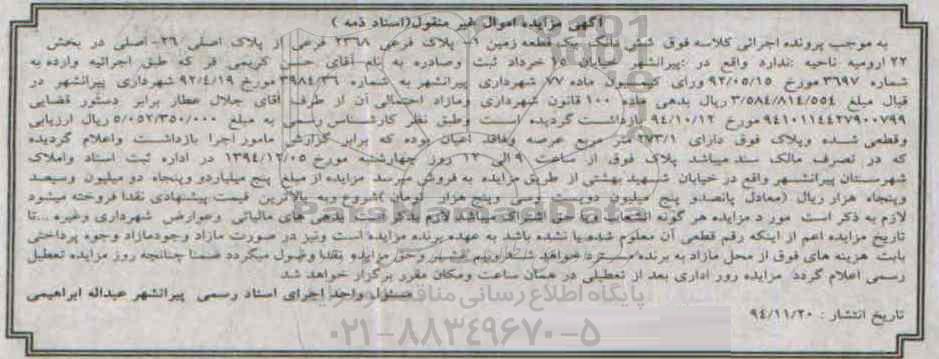 آگهی مزایده اموال غیر منقول(اسناد ذمه )
به موجب پرونده اجرائی کلاسه فوق شش دانگ یک قطعه زمین ۱- پلاک فرعی ۲۳۶۸ فرعی از پلاک اصلی ۲۶- اصلی در بخش
۲۲ ارومیه ناحیه :ندارد واقع در :پیرانشهر خیابان ۱۵ خرداد ثبت وصادره به نام آقای حسن کریمی فر که طبق اجرائیه وارده به
شماره ۳۶۹۷ مورخ ۹۲/۰۵/۱۵ ورای کمیسیون ماده ۷۷ شهرداری پیرانشهر به شماره ۳۹۸۴/۳۶ مورخ ۹۲/۴/۱۹ شهرداری پیرانشهر در
قبال مبلغ ۳/۵۸۴/۸۱۴/۵۵۴ ریال بدهی ماده ۱۰۰ قانون شهرداری ومازاد احتمالی آن از طرف آقای جلال عطار برابر دستور قضایی
۹۴۱۰۱۱۴۴۲۷۹۰۰۷۹۹ مورخ ۹۴/۱۰/۱۲ بازداشت گردیده است وطبق نظر کارشناس رسمی به مبلغ ۵/۰۵۲/۳۵۰/۰۰۰ ریال ارزیابی
وقطعی شده وپلاک فوق دارای ۲۷۳/۱ متر مربع عرصه وفاقد اعیان بوده که برابر گزارش مامور اجرا بازداشت واعلام گردیده
که در تصرف مالک سند میباشد پلاک فوق از ساعت ۹ الی ۱۲ روز چهارشنبه مورخ ۱۳۹۴/۱۲/۰۵ در اداره ثبت اسناد واملاک
شهرستان پیرانشهر واقع در خیابان شهید بهشتی از طریق مزایده به فروش میرسد مزایده از مبلغ پنج میلیاردو پنجاه دو میلیون وسیصد
وپنجاه هزار ریال (معادل پانصدو پنج میلیون دویست وسی وپنج هزار تومان )شروع وبه بالاترین قیمت پیشنهادی نقدا فروخته میشود
لازم به ذکر است مورد مزایده هر گونه انشعاب یا حق اشتراک میباشد لازم بذکر است بدهی های مالیاتی وعوارض شهرداری وغیره ...تا
تاریخ مزایده اعم از اینکه رقم قطعی آن معلوم شده یا نشده باشد به عهده برنده مزایده است ونیز در صورت مازاد وجودمازاد وجوه پرداختی
بابت هزینه های فوق از محل مازاد به برنده مسترد خواهد شد ونیم عشر وحق مزایده نقدا وصول میگردد ضمنا چنانچه روز مزایده تعطیل
رسمی اعلام گردد مزایده روز اداری بعد از تعطیلی در همان ساعت ومکان مقرر برگزار خواهد شد
مسئول واحد اجرای اسناد رسمی پیرانشهر عبداله ابراهیمی
پایگاه اطلاع رسانی مناقصه
تاریخ انتشار : ۹۴/۱۱/۲۰
۰۲۱-۸۸۳۴۹۶۷۰-۵